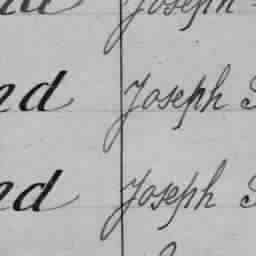 Joseph
nd Joseph S
nd Joseph S